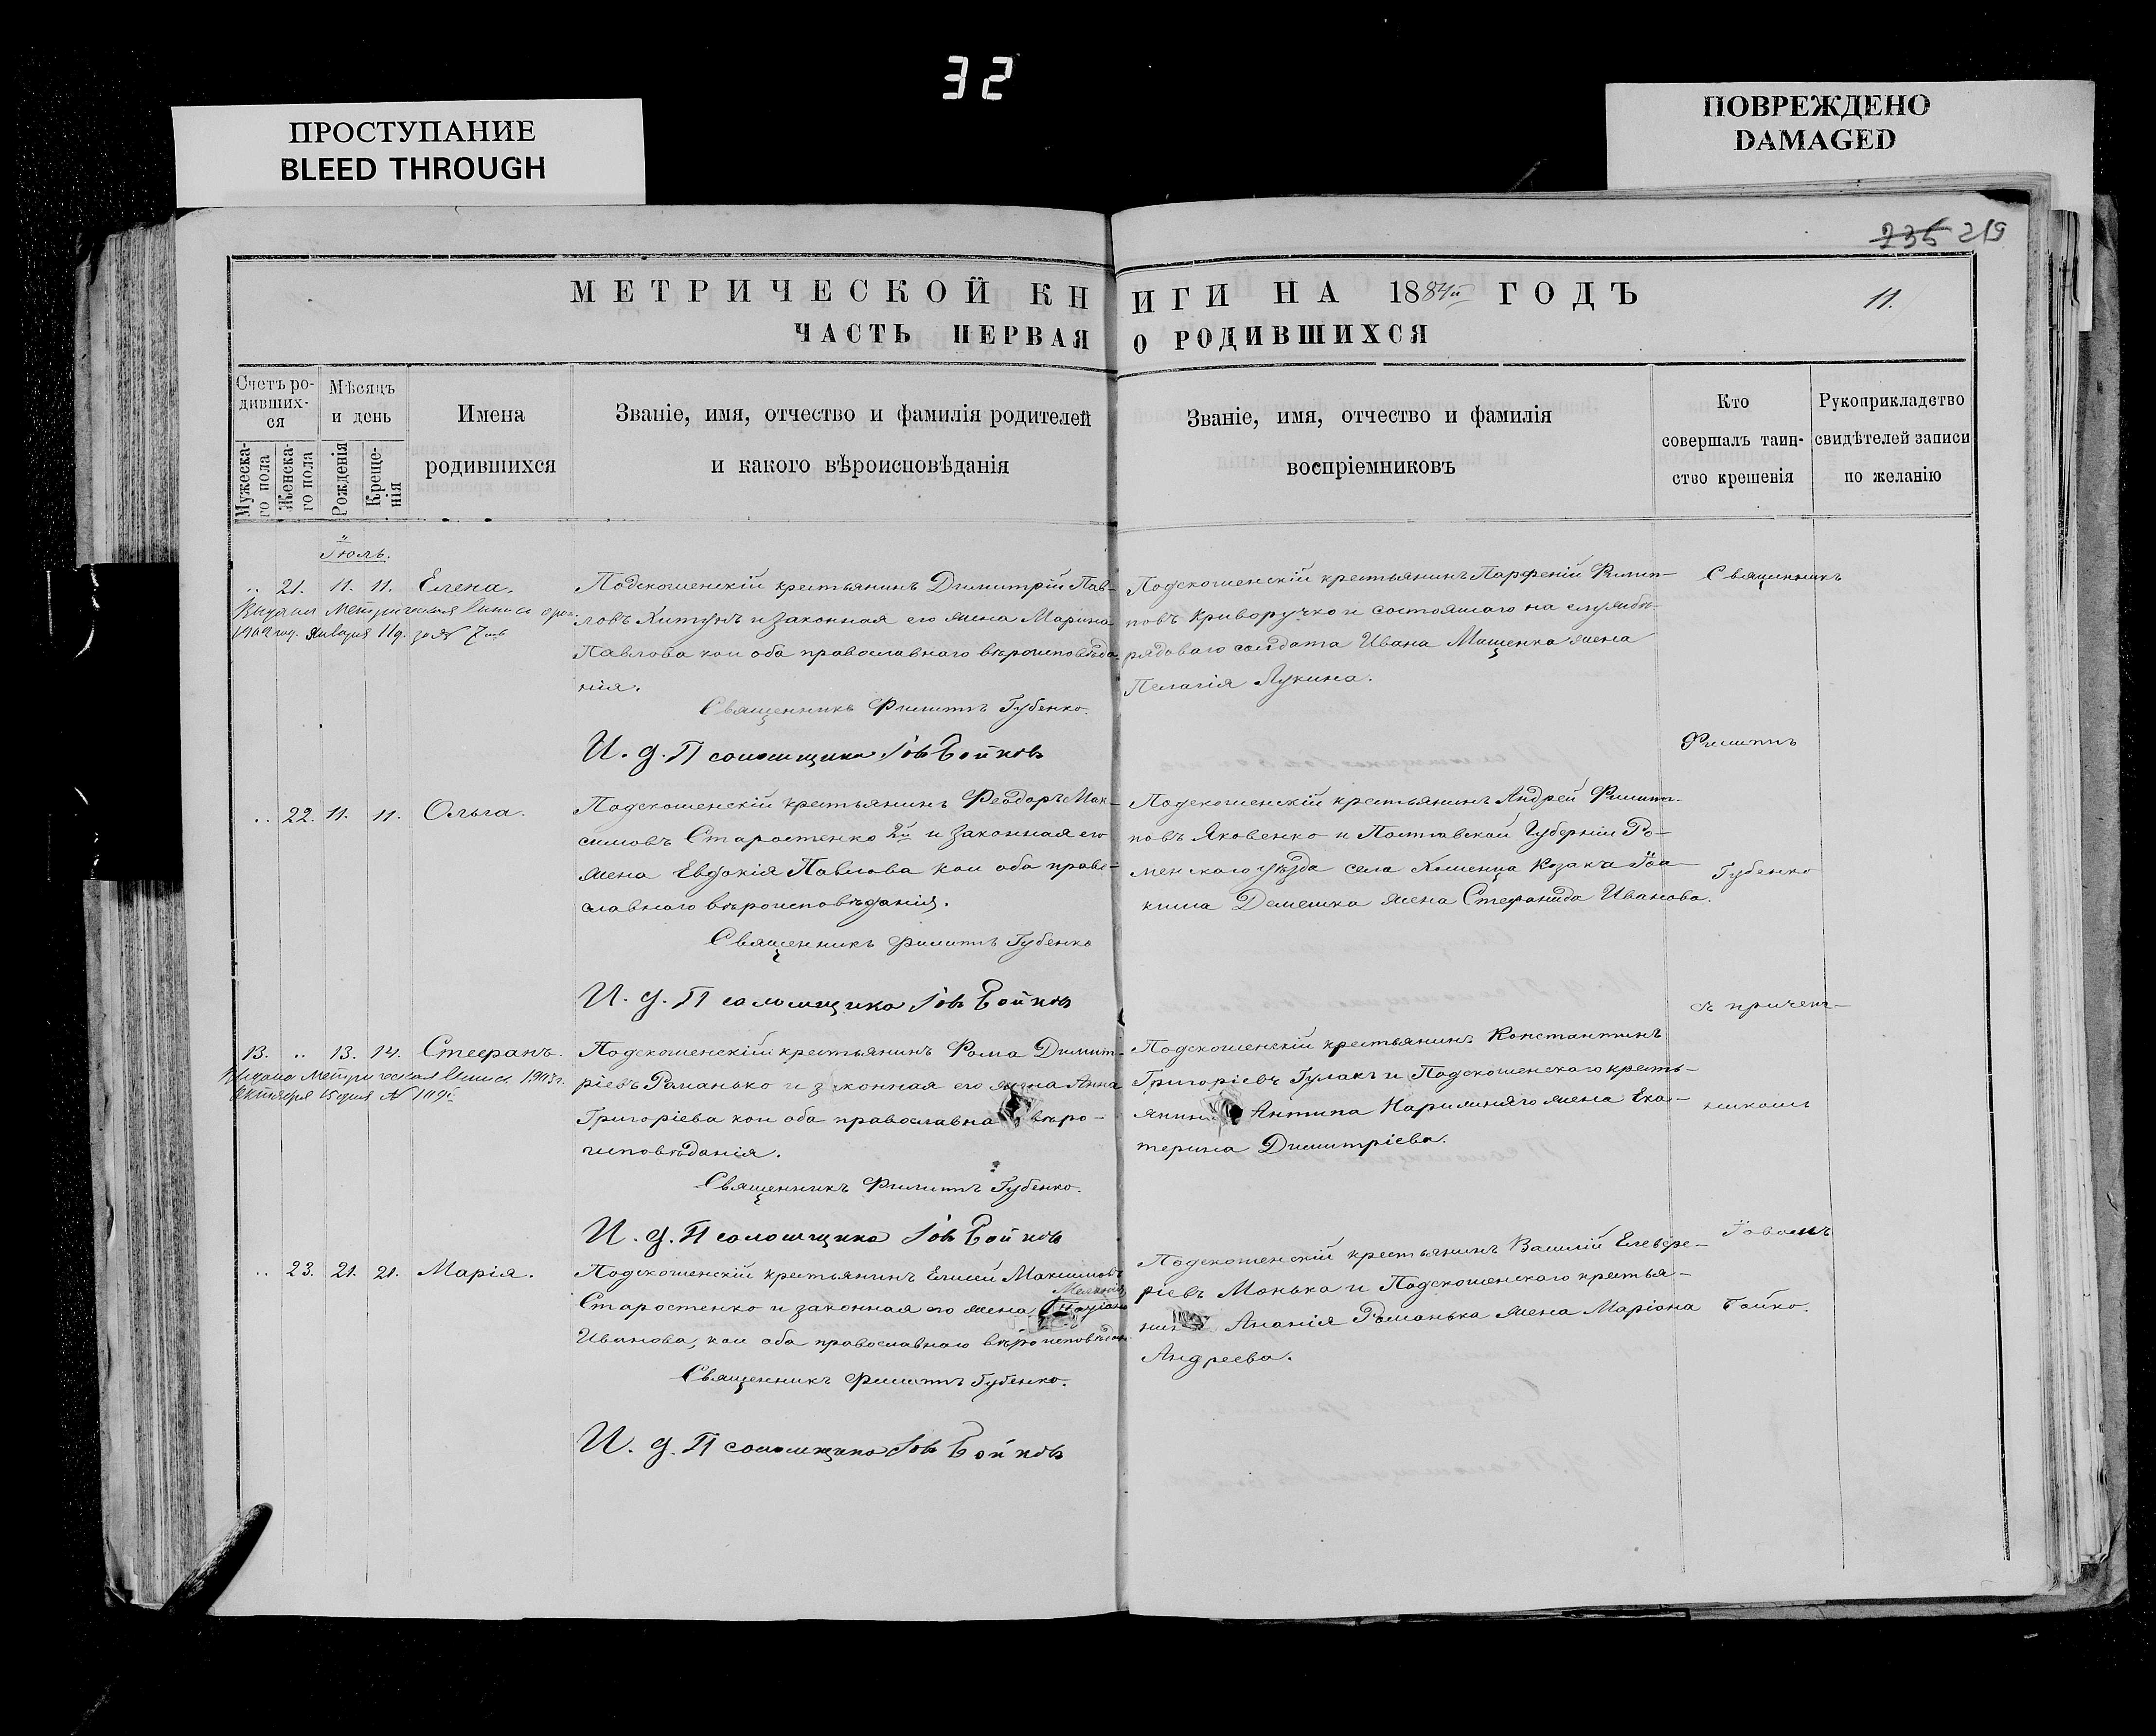 32
ПРОСТУПАНИЕ
BLEED THROUGH
ПОВРЕЖДЕНО
DAMAGED
235 219
МЕТРИЧЕСКОЙ КНИГИ НА 1884й ГОДЪ
11.
ЧАСТЬ ПЕРВАЯ О РОДИВШИХСЯ
Счетъ ро-
дивших-
ся
Мужеска-
го пола
Женска-
го пола
Мѣсяцъ
и день
Рожденія
Креще-
нія
Имена
родившихся
Званіе, имя, отчество и фамилія родителей
и какого вѣроисповѣданія
Званіе, имя, отчество и фамилія
воспріемниковъ
Кто
совершалъ таин-
ство крещенія
Рукоприкладство
свидѣтелей записи
по желанію
Іюль.
21. 11. 11. Елена.
Выдана Метрическая
1912 год. Января 11 д. за № 7
Подскошенскій крестьянинъ Димитрій Пав-
ловъ Хитунъ и законная его жена Марина
Павлова кои оба православнаго вѣроисповѣда-
нія.
Священникъ Филиппъ Губенко.
И. д. Псаломщика Іовъ Бойковъ
Подскошенскій крестьянинъ Парфеній Филип-
повъ Криворучко и состоящаго на службѣ
рядоваго солдата Ивана Мащенка жена
Пелагія Лукина.
22. 11. 11. Ольга.
Подскошенскій крестьянинъ Феодоръ Мак-
симовъ Старостенко 2й и законная его
жена Евдокія Павлова кои оба право-
славнаго вѣроисповѣданія.
Священникъ Филиппъ Губенко
И. д. Псаломщика Іовъ Бойковъ
Подскошенскій крестьянинъ Андрей Филип-
повъ Яковенко и Полтавской Губерніи Ро-
менскаго уѣзда села Козака Іоа-
кима Демешка жена Стефанида Иванова.
13. 13. 14. Стефанъ.
Выдана Метрическая
Октября
Подскошенскій крестьянинъ Фома Димит-
ріевъ Романько и законная его жена Анна
Григоріева кои оба православна вѣро-
исповѣданія.
Священникъ Филиппъ Губенко.
И. д. Псаломщика Іовъ Бойковъ
Подскошенскій крестьянинъ Константинъ
Григоріевъ Гулакъ и Подскошенскаго кресть-
янина Антипа Нарижняго жена Ека-
терина Димитріева.
23. 21. 21. Марія.
Подскошенскій крестьянинъ Елисей Максимовъ
Старостенко и законная его жена
Иванова, кои оба православнаго вѣроисповѣдан.
Священникъ Филиппъ Губенко.
И. д. Псаломщика Іовъ Бойковъ
Подскошенскій крестьянинъ Василій Елевфе-
ріевъ Монька и Подскошенскаго крестья-
нина Ананія Романька жена Маріона
Андреева.
Священникъ
Филиппъ
Губенко
съ причет-
никомъ
Іовомъ
Бойко.